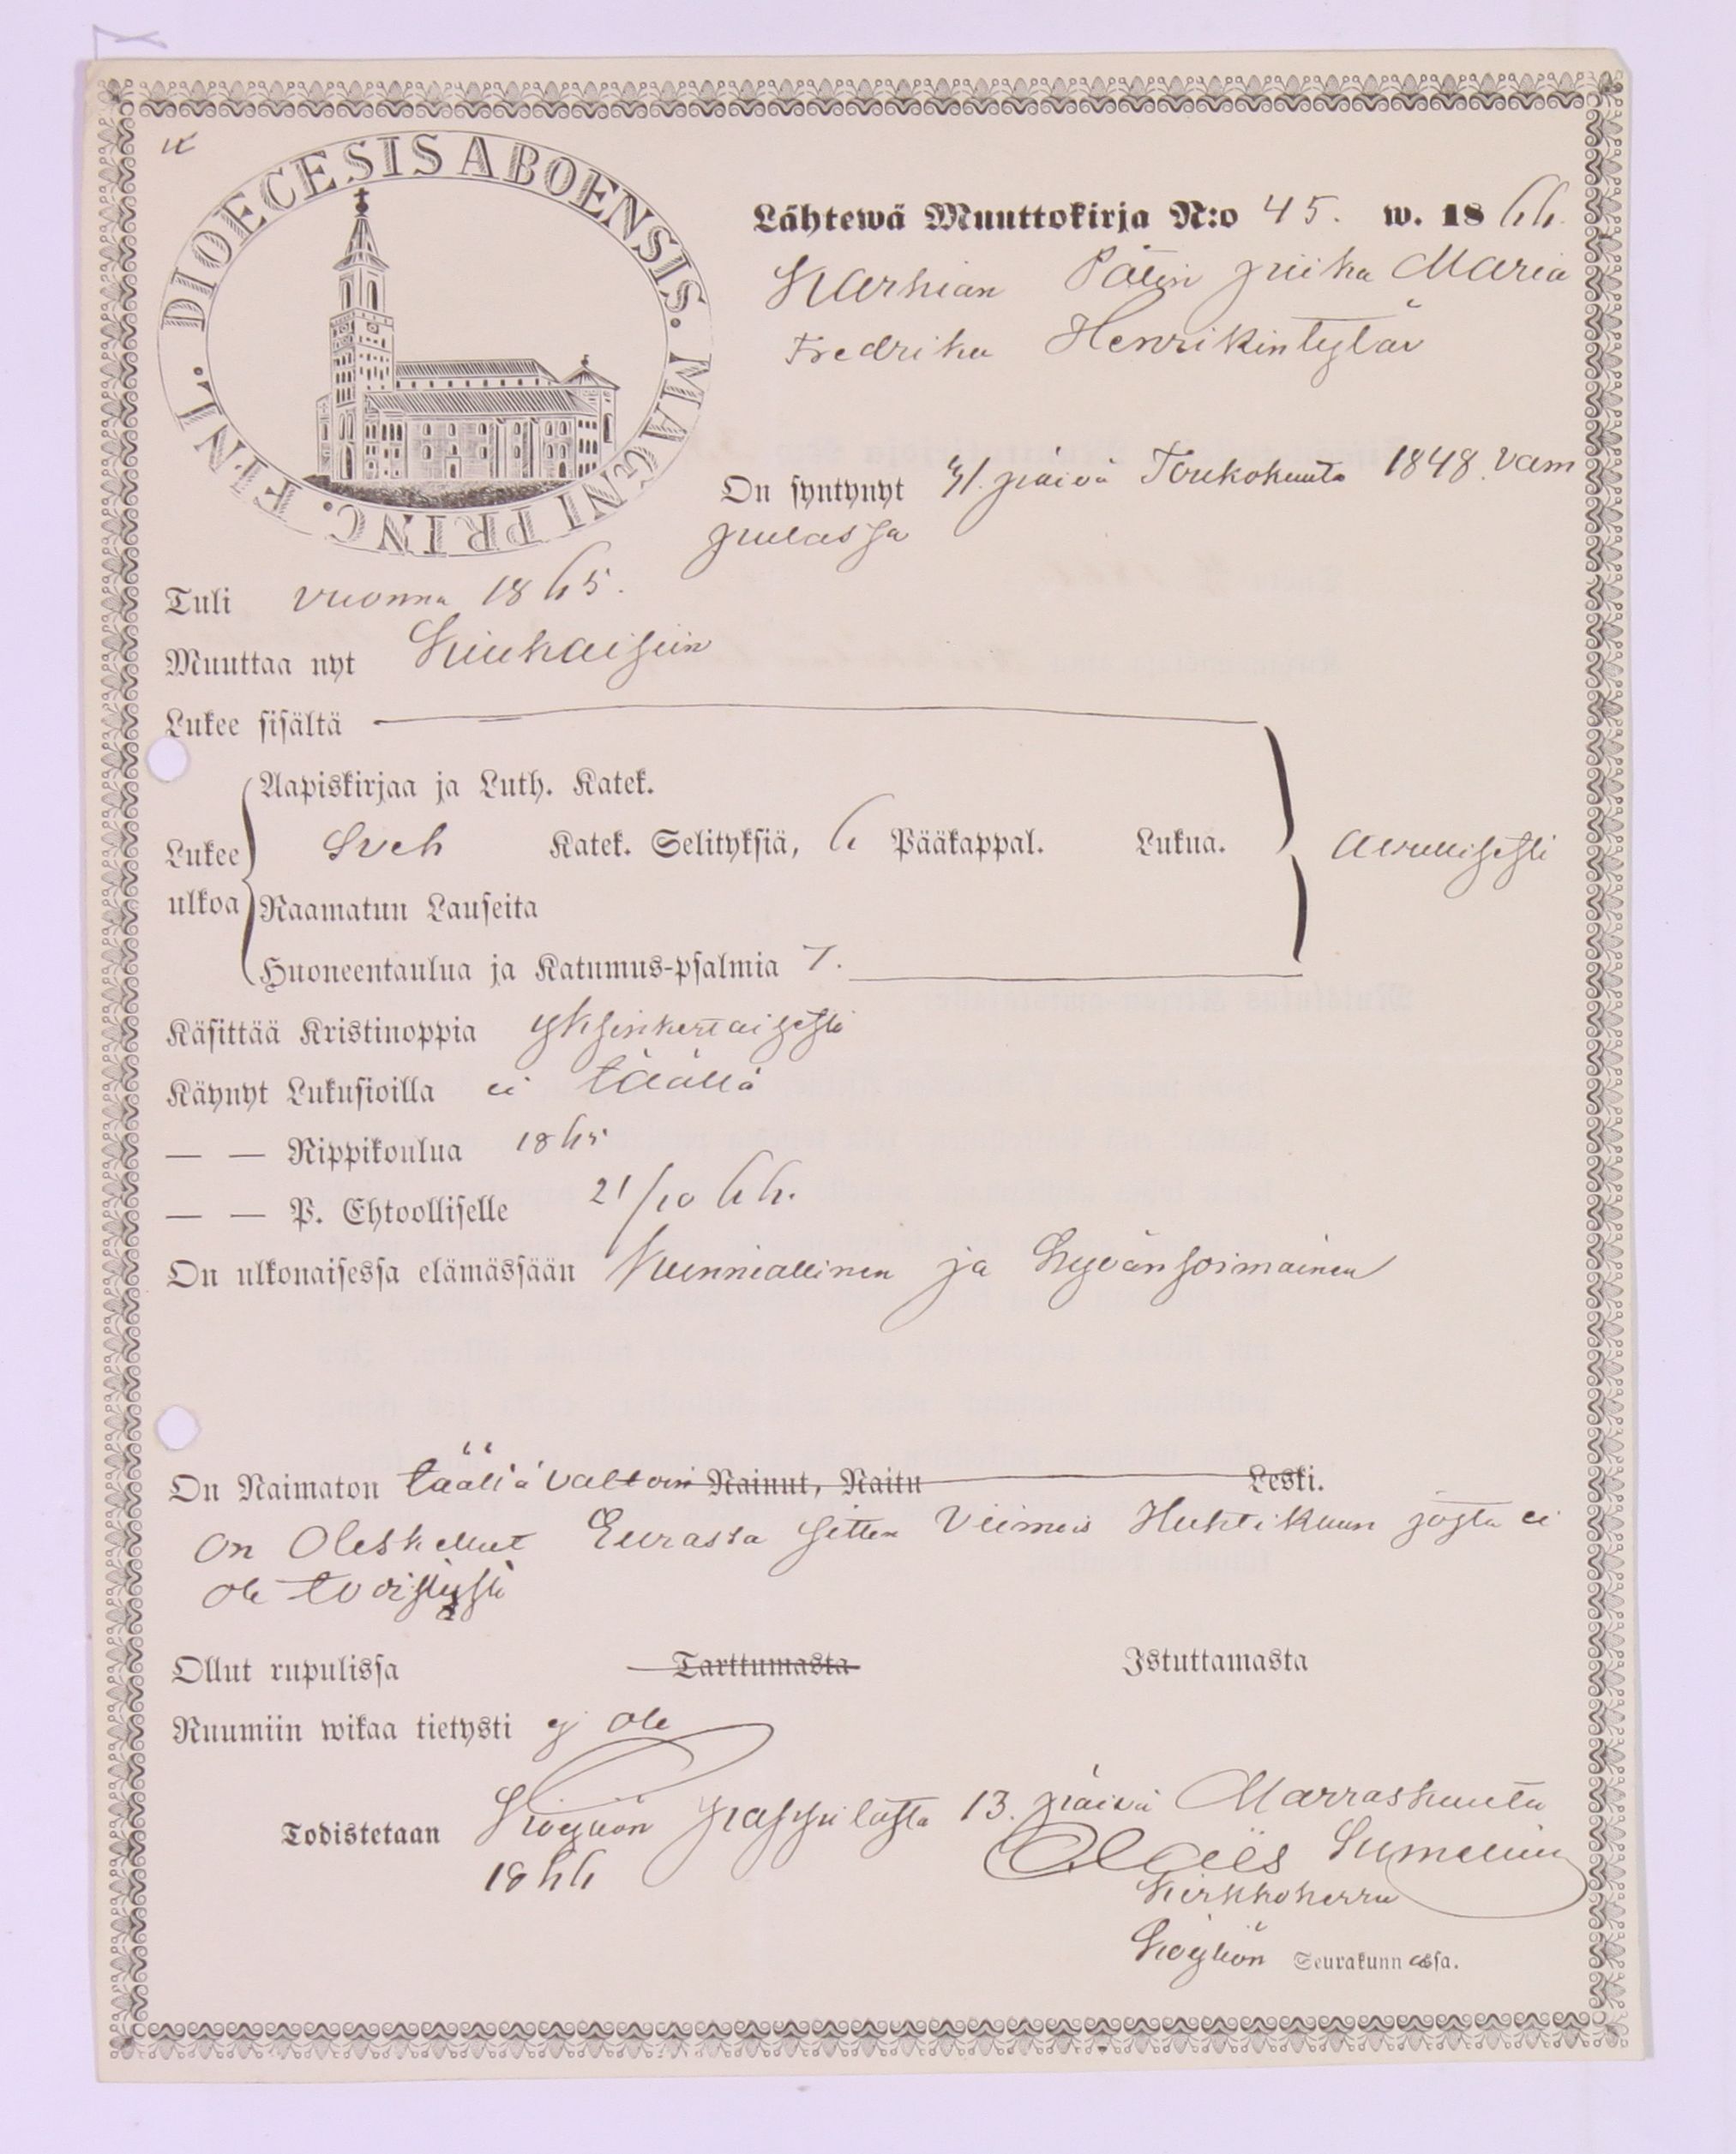 DIOECESIS ABOENSIS. MAGNI PRINC. FINL.
Lähtewä Muuttokirja N:o 45. w. 1866.
Karhian Pätin piika Maria
Fredrika Henrikintytär
On syntynyt 31. päivä Toukokuuta 1848. Vam
pulassa
Tuli vuonna 1865.
Muuttaa nyt Kiukaisiin
Lukee sisältä
Aapiskirjaa ja Luth. Katek.
Lukee ulkoa Sveb Katek. Selityksiä, 6 Pääkappal. Lukua. Auvullisesti
Raamatun Lauseita
Huoneentaulua ja Katumus-psalmia 7.
Käsittää Kristinoppia yksinkertaisesti
Käynyt Lukusioilla ei täällä
— — Rippikoulua 1865
— — P. Ehtoolliselle 21/10 66.
On ulkonaisessa elämässään Kunniallinen ja hyvänsoimainen
On Naimaton täällä valtoin Nainut, Naitu Leski.
On Oleskellut Eurassa sitten Viimeis Huhtikuun josta ei
ole todistusta
Ollut rupulissa Tarttumasta Istuttamasta
Ruumiin wikaa tietysti ej ole
Todistetaan Köyliön pappilasta 13. päivä Marraskuuta
1866
Kirkkoherra
Köyliön Seurakunnassa.